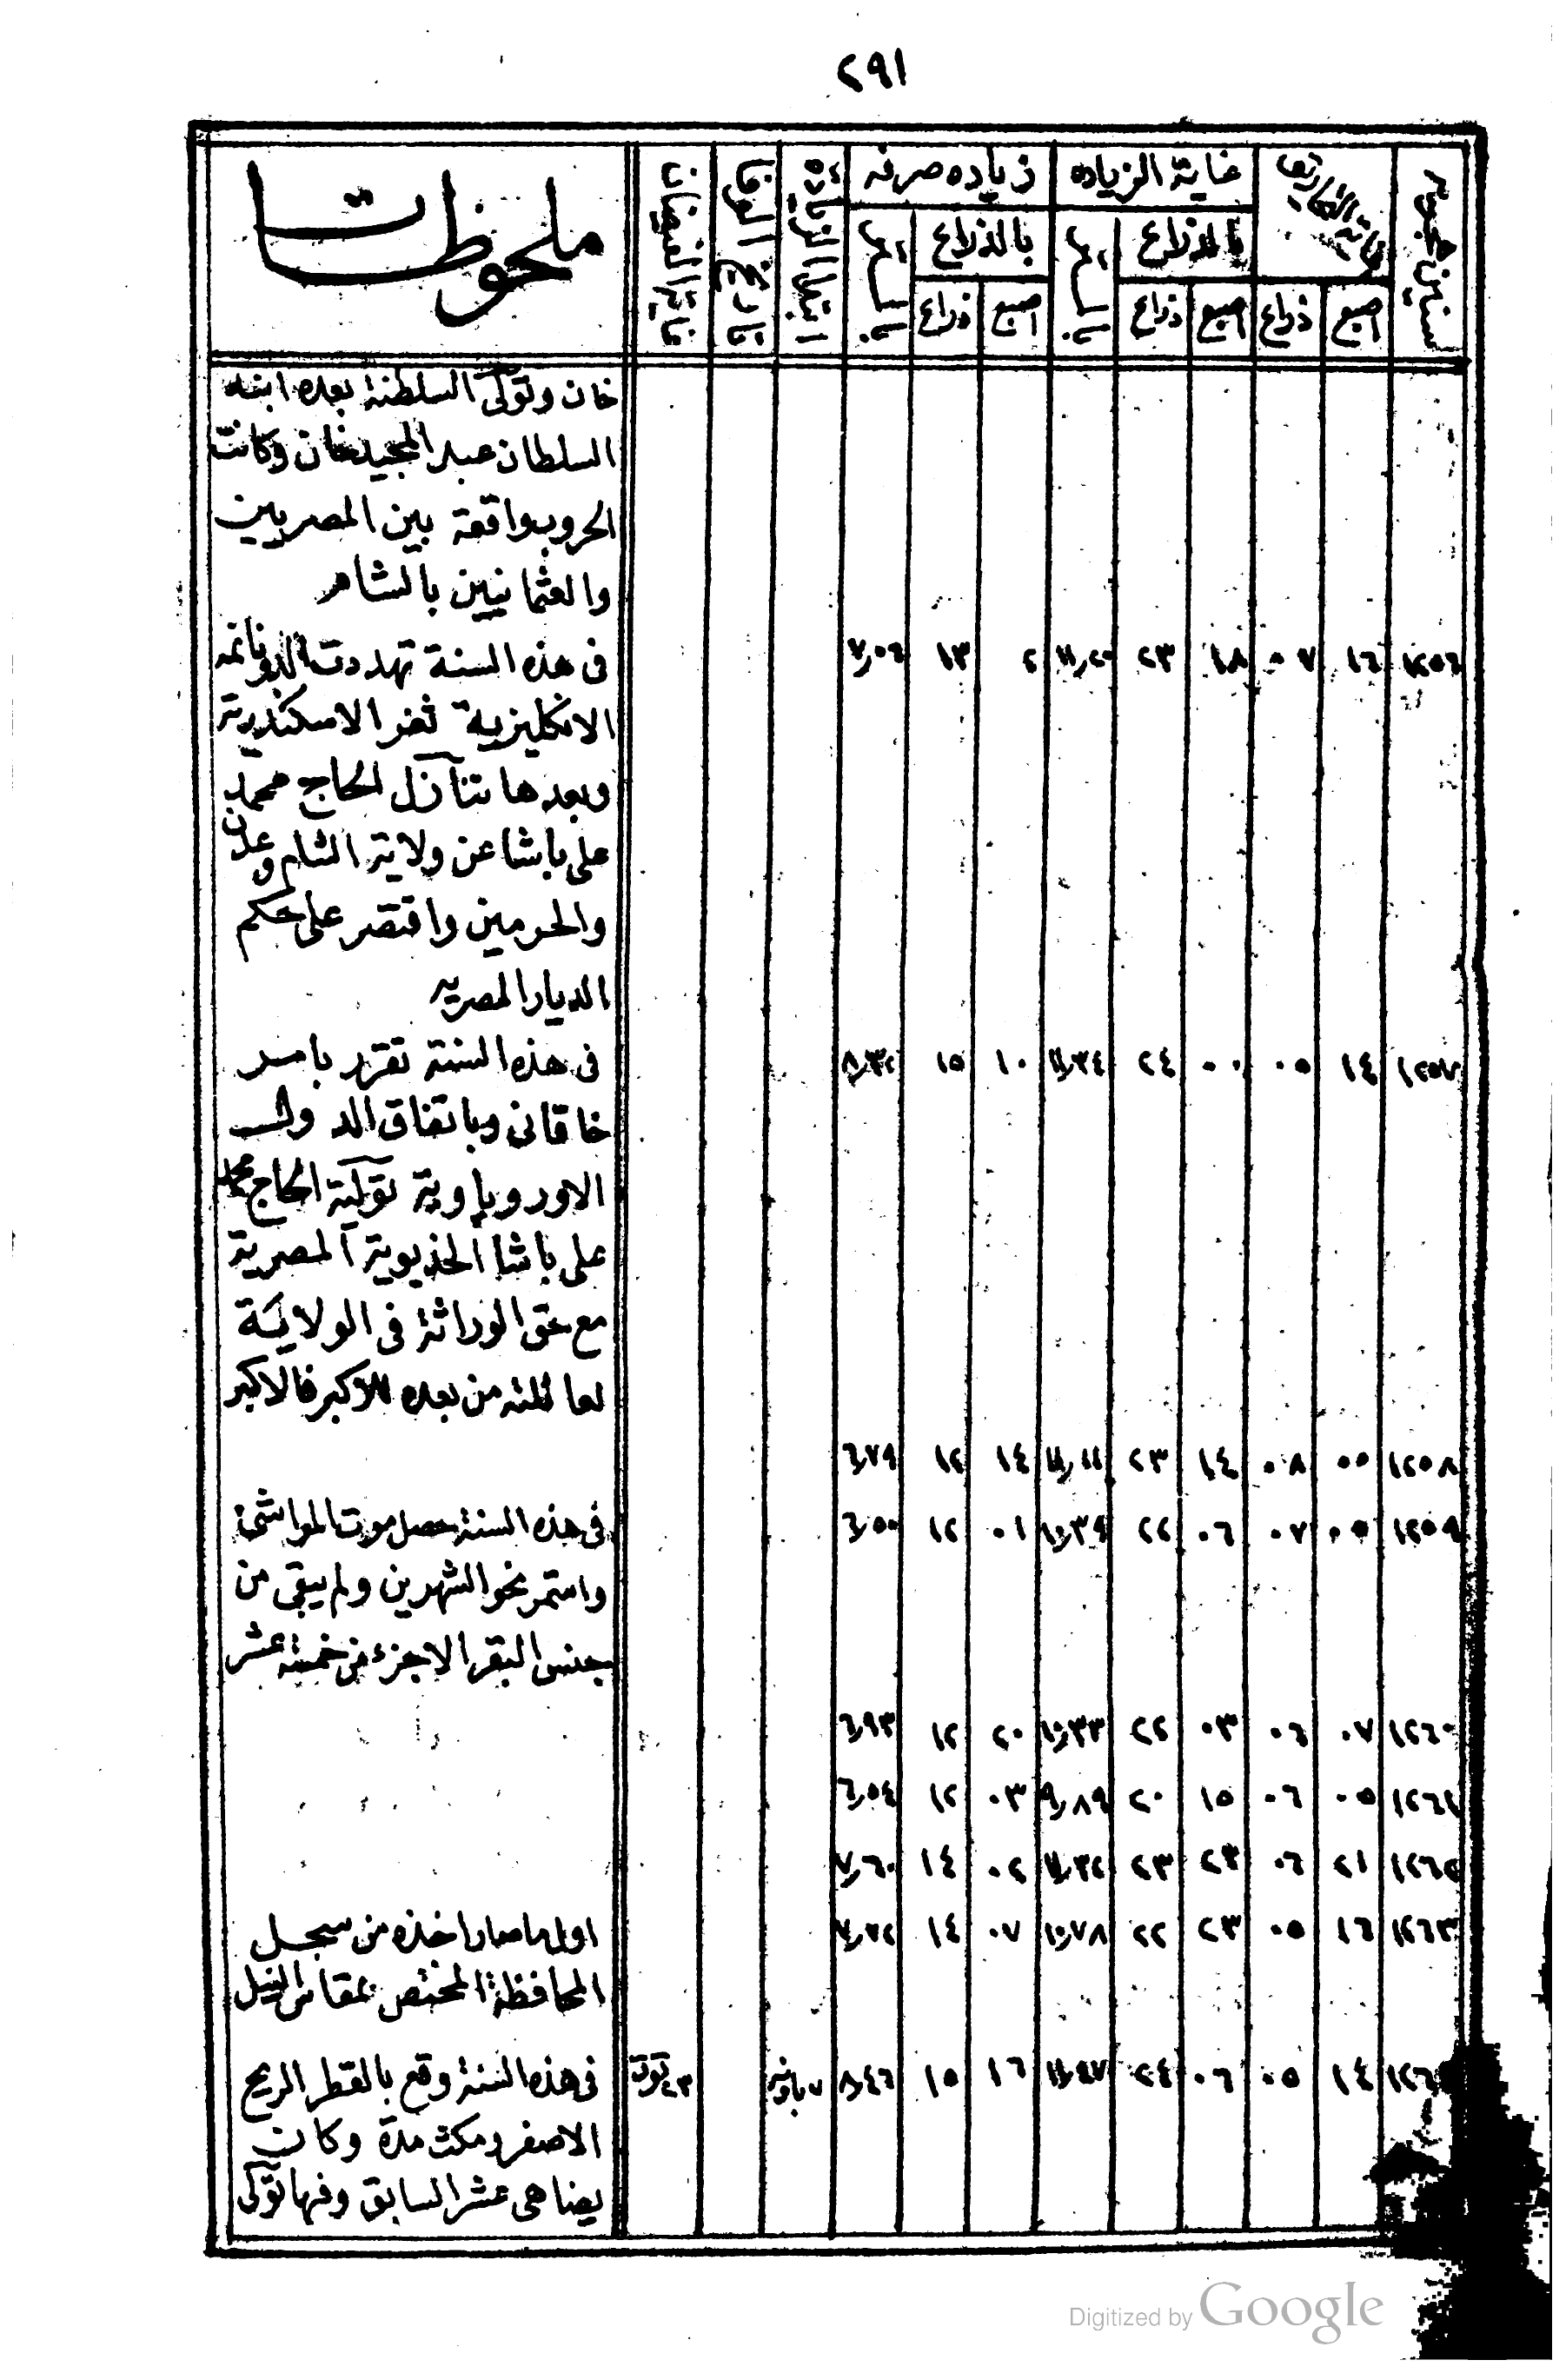 ٢٩١
سنين هجريه
غاية التحاريق
غاية الزياده
زياده صرفه
ابتدا الزيادة
تاريخ الوفا
غاية الفيضان
ملحوظات
بالذراع
بالذراع
اصبع
ذراع
اصبع
ذراع
اصبع
ذراع
خان وتولى السلطنة بعده ابنه
السلطان عبد المجيد خان وكانت
الحروب واقعة بين المصريين
والعثمانيين بالشام
١٢٥٦ ١٦ ٠٧ ١٨ ٢٣ ١١٫٢٠ ٢ ١٣ ٧٫٠٦ فى هذه السنة تهددت الدونانمه
الانكليزية ثغر الاسكندرية
وبعدها تنازل الحاج محمد
على باشا عن ولاية الشام وعدن
والحرمين واقتصر على حكم
الديار المصريه
١٢٥٧ ١٤ ٠٥ ٠٠ ٢٤ ١١٫٣٤ ١٠ ١٥ ٨٫٣٢ فى هذه السنة تقرر بامر
خاقانى وباتفاق الدول
الاوروپاوية تولية الحاج محمد
على باشا الخديوية المصرية
مع حق الوراثة فى الولاية
لعائلته من بعده للاكبر فالاكبر
١٢٥٨ ٠٥ ٠٨ ١٤ ٢٣ ١١٫١١ ١٤ ١٢ ٦٫٧٩
١٢٥٩ ٠٥ ٠٧ ٠٦ ٢٢ ١٠٫٣٩ ٠١ ١٢ ٦٫٥٠ فى هذه السنة حصل موت المواشى
واستمر نحو الشهرين ولم يبقى من
جنس البقر الاجزء من خمسة عشر
١٢٦٠ ٠٧ ٠٦ ٠٣ ٢٢ ١٠٫٣٣ ٢٠ ١٢ ٦٫٩٣
١٢٦١ ٠٥ ٠٦ ١٥ ٢٠ ٩٫٨٩ ٠٣ ١٢ ٦٫٥٤
١٢٦٢ ٢١ ٠٦ ٢٣ ٢٣ ١١٫٣٢ ٠٢ ١٤ ٧٫٦٠
١٢٦٣ ١٦ ٠٥ ٢٣ ٢٢ ١٠٫٧٨ ٠٧ ١٤ ٧٫٧٢ اول ما صار اخذه من سجل
المحافظة المختص بمقاس النيل
١٤ ٠٥ ٠٦ ٢٤ ١١٫٤٧ ١٦ ١٥ ٨٫٤٦ ٧ باونه ٢٣ توت فى هذه السنة وقع بالقطر الريح
الاصفر ومكث مدة وكان
يضاهى عشر السابق وفيها تولى
Digitized by Google